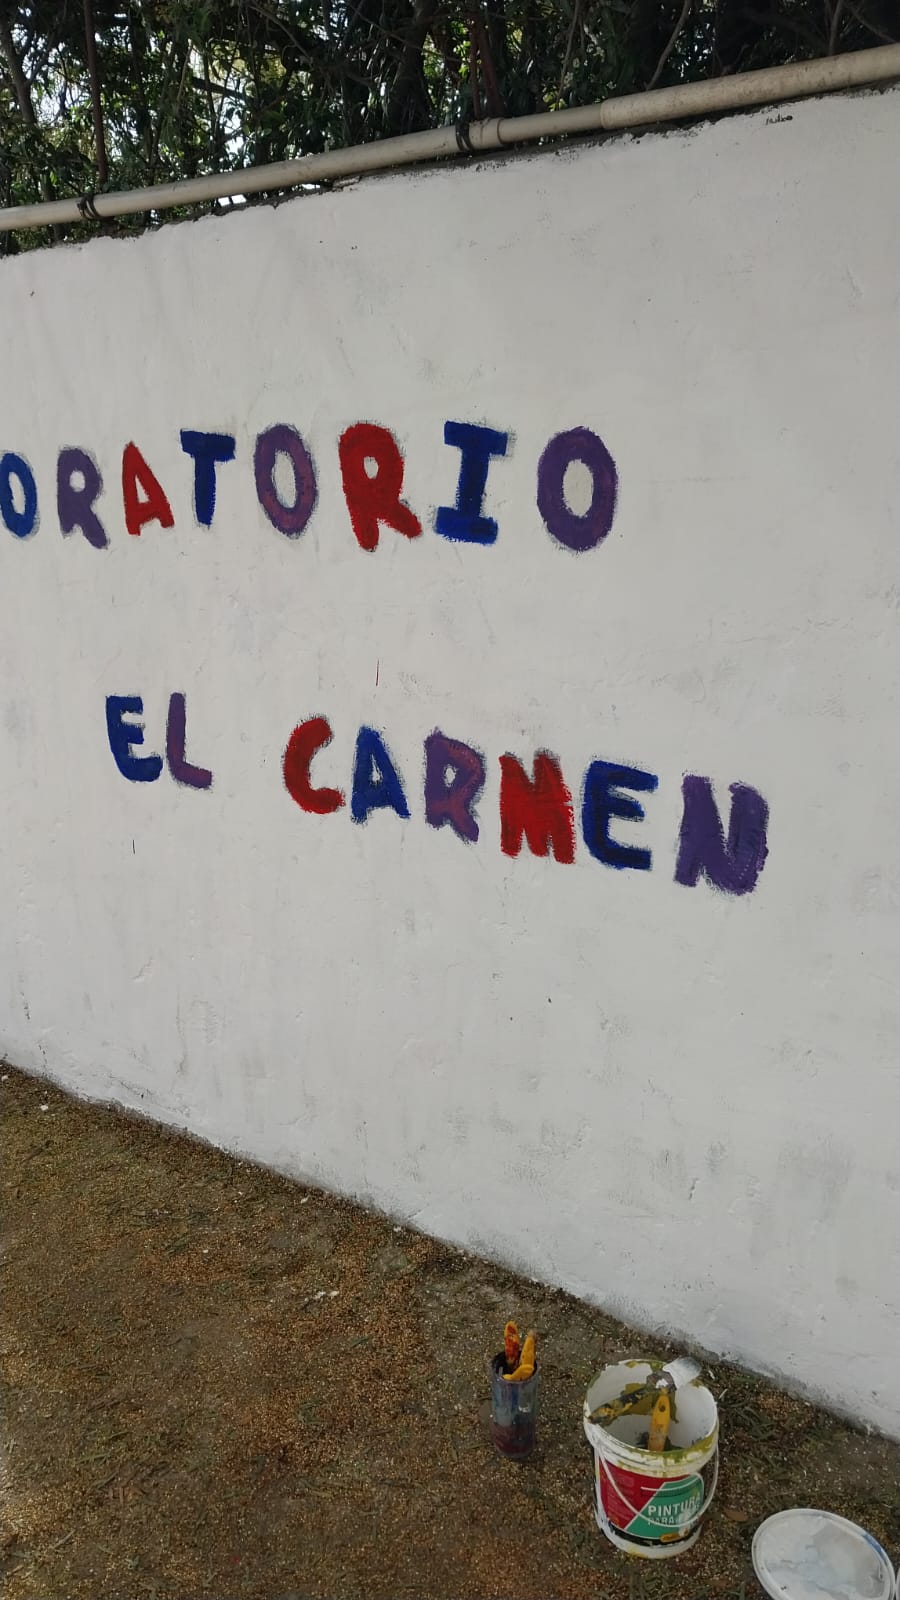 ORATORIO
EL CARMEN
PINTURA
PARA